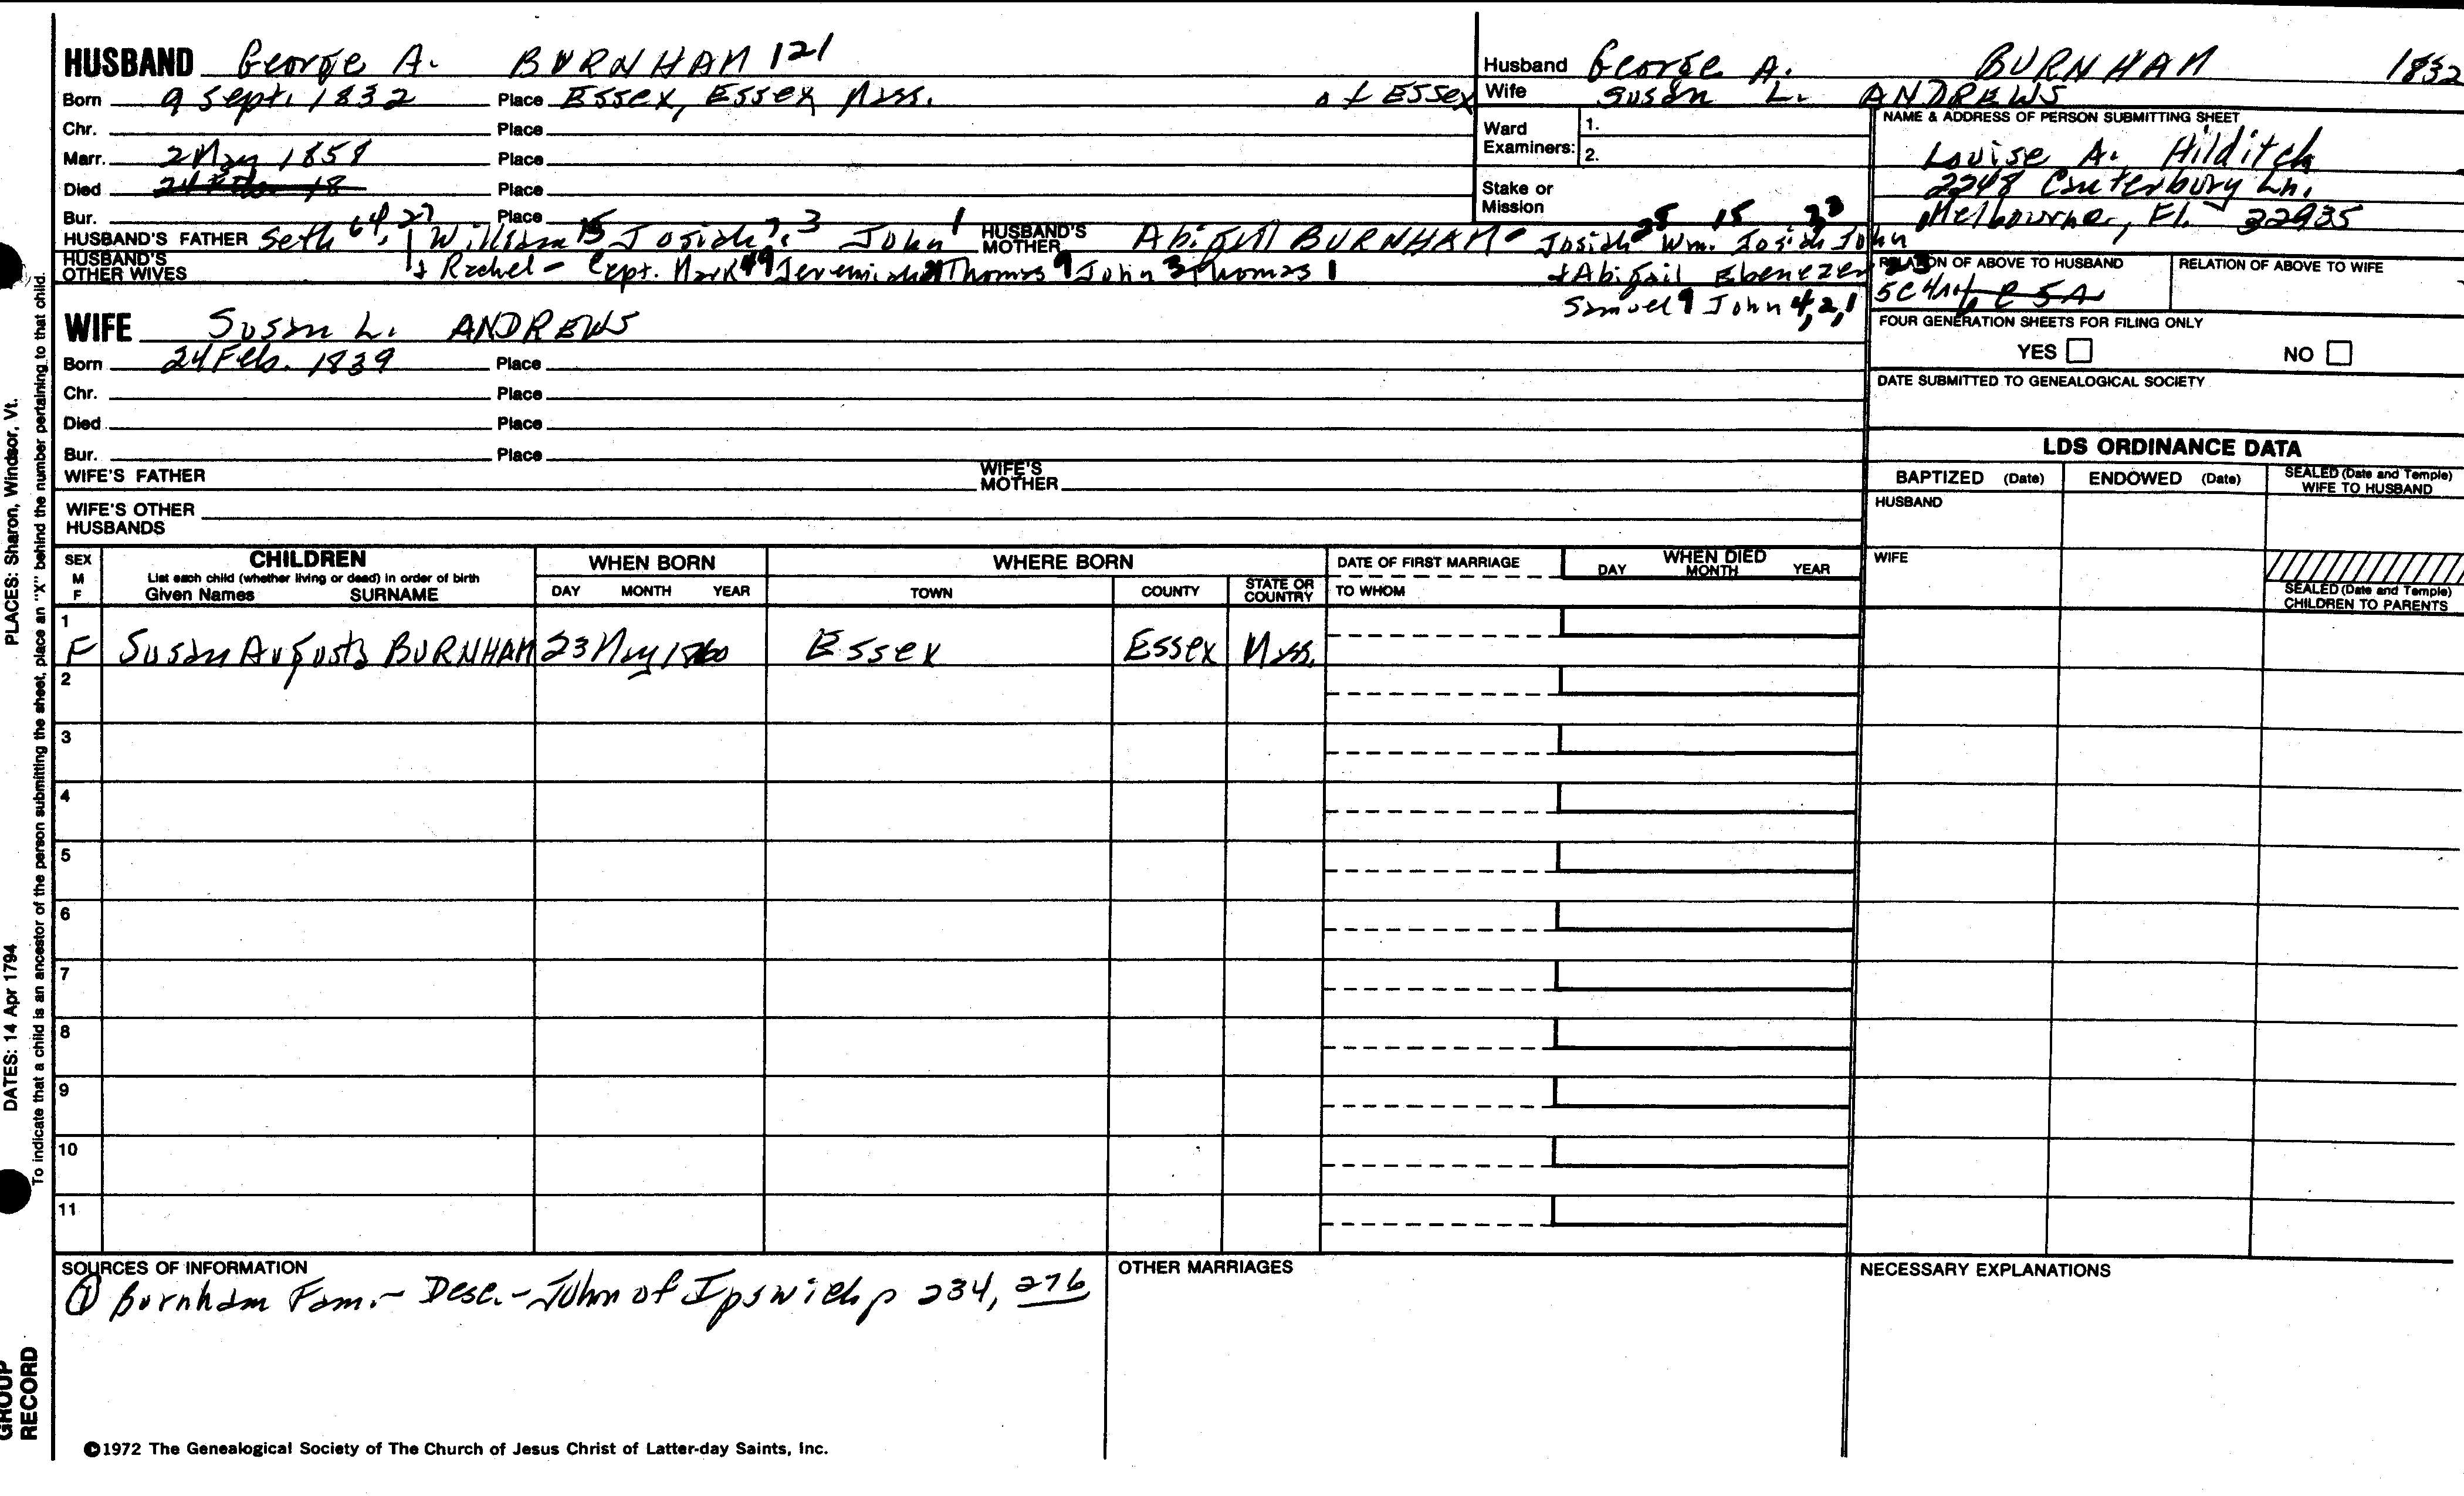 HUSBAND George A. BURNHAM 121
Born 9 Sept. 1832 Place Essex, Essex Mass. of Essex
Chr. Place
Marr. 2 May 1858 Place
Died Place
Bur. Place
HUSBAND'S FATHER Seth 64, 27, 1 William 15 Josiah 7, 3 John 1 HUSBAND'S MOTHER Abigail BURNHAM - Josiah 28 Wm. 15 Josiah John
HUSBAND'S OTHER WIVES + Rachel - Capt. Mark 49 Jeremiah 21 Thomas 9 John 3 Thomas 1 + Abigail Ebenezer 23
Samuel 9 John 4, 2, 1
WIFE Susan L. ANDREWS
Born 24 Feb. 1839 Place
Chr. Place
Died Place
Bur. Place
WIFE'S FATHER WIFE'S MOTHER
WIFE'S OTHER HUSBANDS
Husband George A. BURNHAM 1832
Wife Susan L. ANDREWS
Ward Examiners: 1.
2.
Stake or Mission
NAME & ADDRESS OF PERSON SUBMITTING SHEET
Louise A. Hilditch
2248 Canterbury Ln.
Melbourne, Fl. 32935
RELATION OF ABOVE TO HUSBAND RELATION OF ABOVE TO WIFE
5C4A
FOUR GENERATION SHEETS FOR FILING ONLY
YES NO
DATE SUBMITTED TO GENEALOGICAL SOCIETY
LDS ORDINANCE DATA
BAPTIZED (Date) ENDOWED (Date) SEALED (Date and Temple) WIFE TO HUSBAND
HUSBAND
WIFE
SEALED (Date and Temple) CHILDREN TO PARENTS
SEX M F
CHILDREN
List each child (whether living or dead) in order of birth
Given Names SURNAME
WHEN BORN
DAY MONTH YEAR
WHERE BORN
TOWN COUNTY STATE OR COUNTRY
DATE OF FIRST MARRIAGE
TO WHOM
WHEN DIED
DAY MONTH YEAR
1
F Susan Augusta BURNHAM 23 May 1860 Essex Essex Mass.
2
3
4
5
6
7
8
9
10
11
SOURCES OF INFORMATION
① Burnham Fam. - Desc. - John of Ipswich p 234, 276
OTHER MARRIAGES
NECESSARY EXPLANATIONS
©1972 The Genealogical Society of The Church of Jesus Christ of Latter-day Saints, Inc.
PLACES: Sharon, Windsor, Vt.
DATES: 14 Apr 1794
To indicate that a child is an ancestor of the person submitting the sheet, place an "X" behind the number pertaining to that child.
GROUP
RECORD